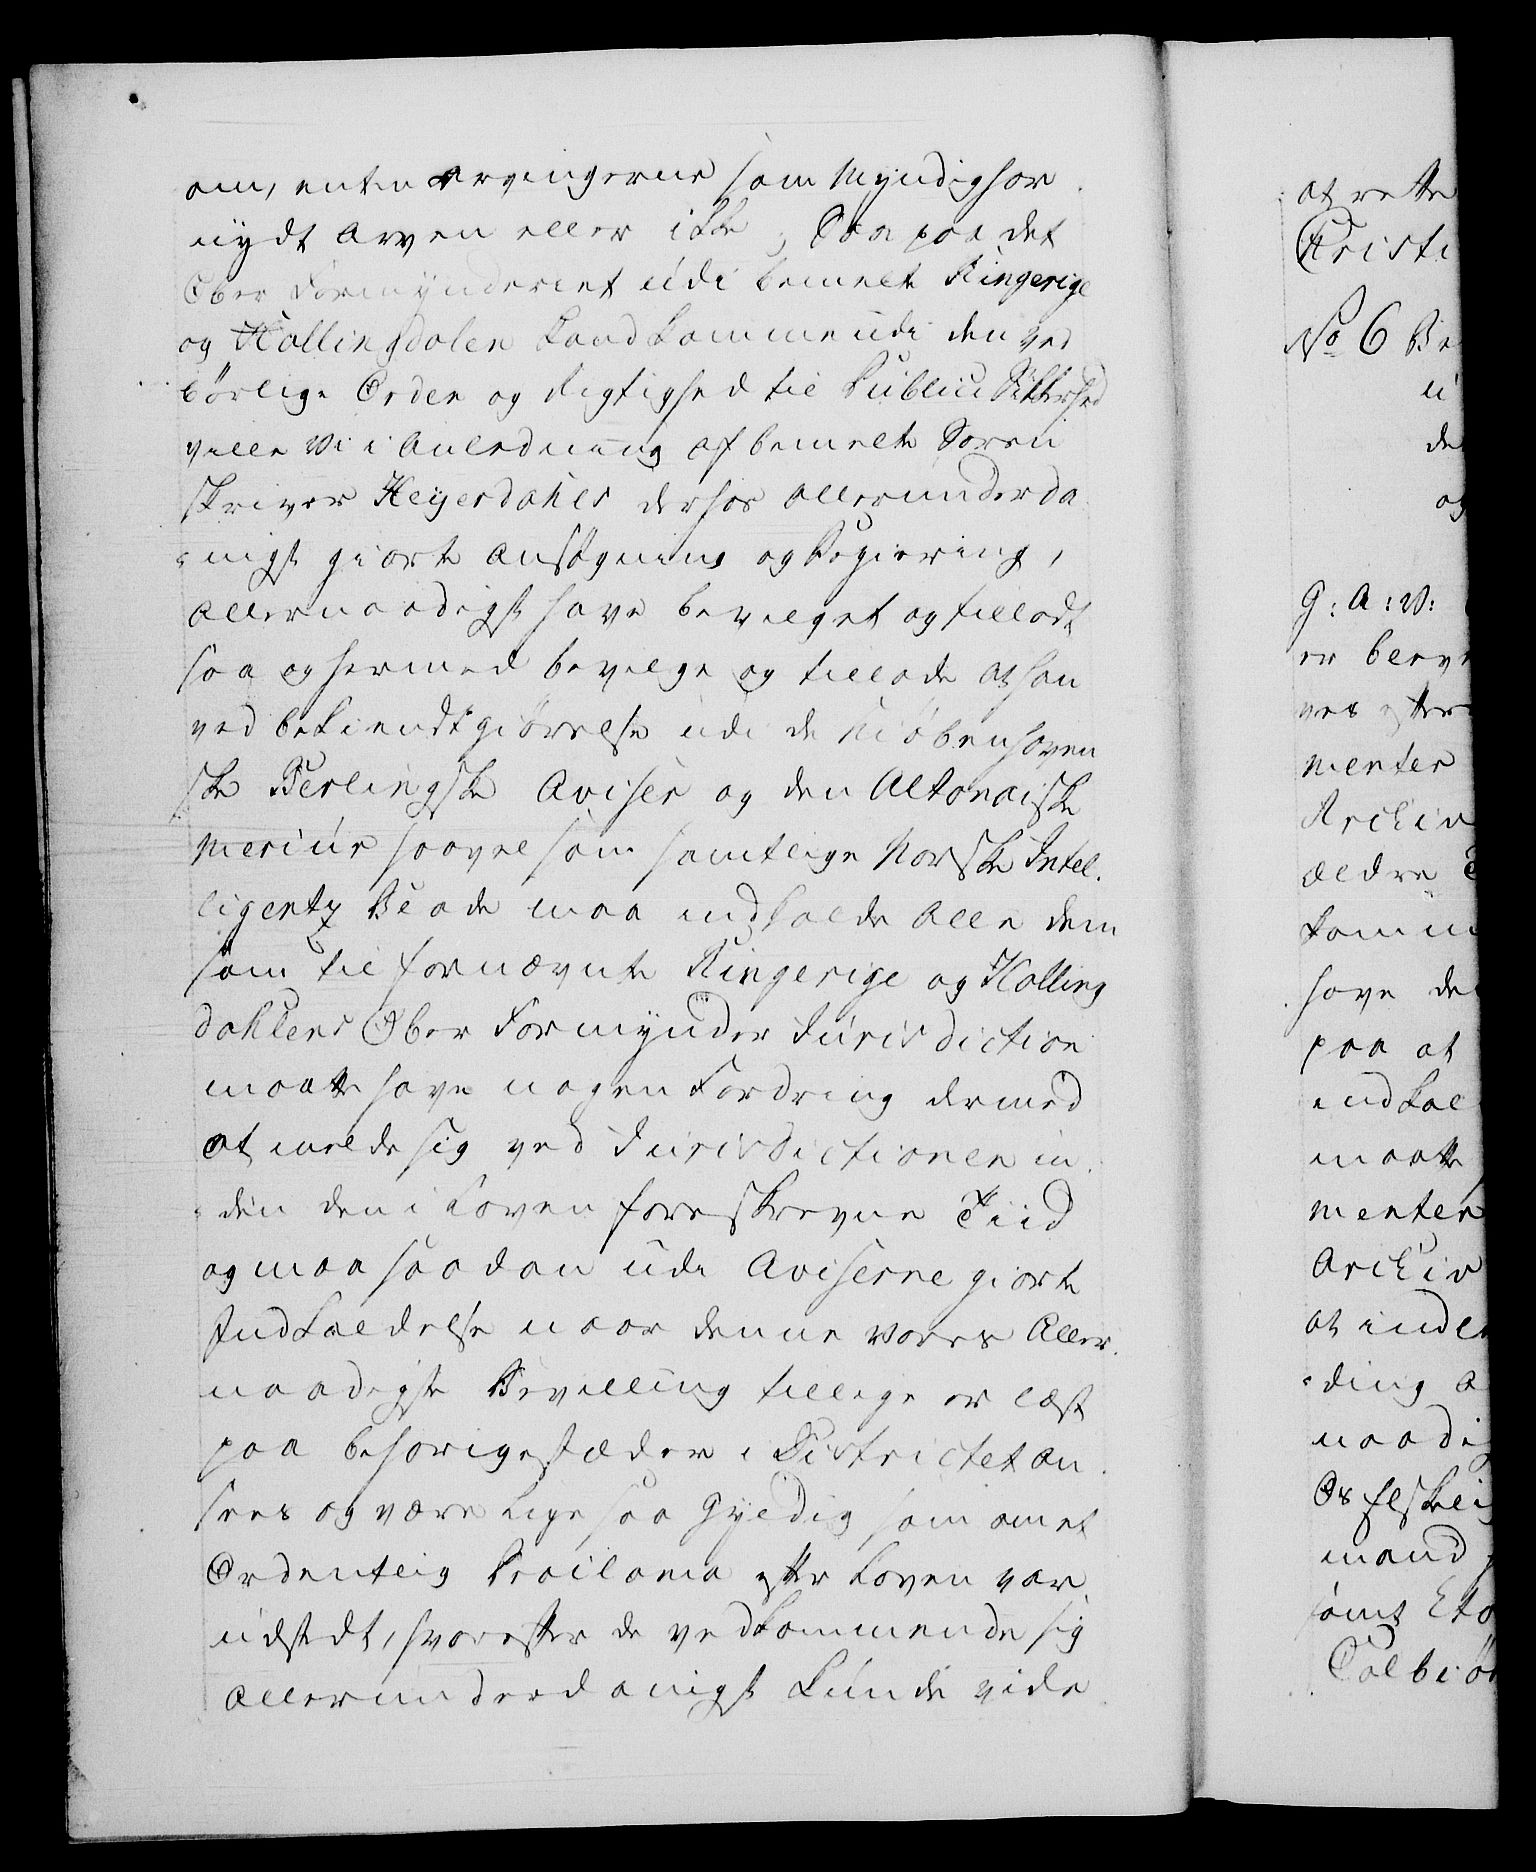 om, enten arvingerne som Myndig har
nydt Arven eller ikke, Saa paa det
Ober Formynderiet udi bemelte Ringerige
og Hallingdalen kand komme udi den ved
børlige Orden og Rigtighed til Publici Sikkerhed
ville Vi i Anledning af bemelte Soren
skriver Heyerdahls derhos allerunderda
nigst giorte Ansøgning og Begiering,
allernaadigst have bevilget og tilladt
saa og hermed bevilge og tillade at han
ved bekiendtgiørelse udi de Kiøbenhavn
ske Berlingske Aviser og den Altonaiske
Mercur saavel som samtlige Norske Intel-
ligentz Blade maa indkalde alle dem
som til fornævnte Ringerige og Halling
dahlens Ober Formynder Jurisdiction
maatte have nogen Fordring dermed
at melde sig ved Jurisdictionen in-
den den i Loven foreskrevne Tiid
og maa saadan udi Aviserne giorte
Indkaldelse naar denne Vores Aller-
naadigste Bevilling tillige er læst
paa behørige stæder i Districtet an-
sees og være lige saa Gyldig som om et
Ordentlig Proclama efter Loven var
udstedt, hvorefter de vedkommende sig
allerunderdanigst kunde vide
at rette
Christi
No 6 Be
u
de
og
G: A: V:
er bleve
ves efter
menter
Archiv
ældre
komm
have de
paa at
indkal
maatte
menter
Archiv
at inde
ding a
naadi
Os Elskelig
mand
samt Eta
Colbiør